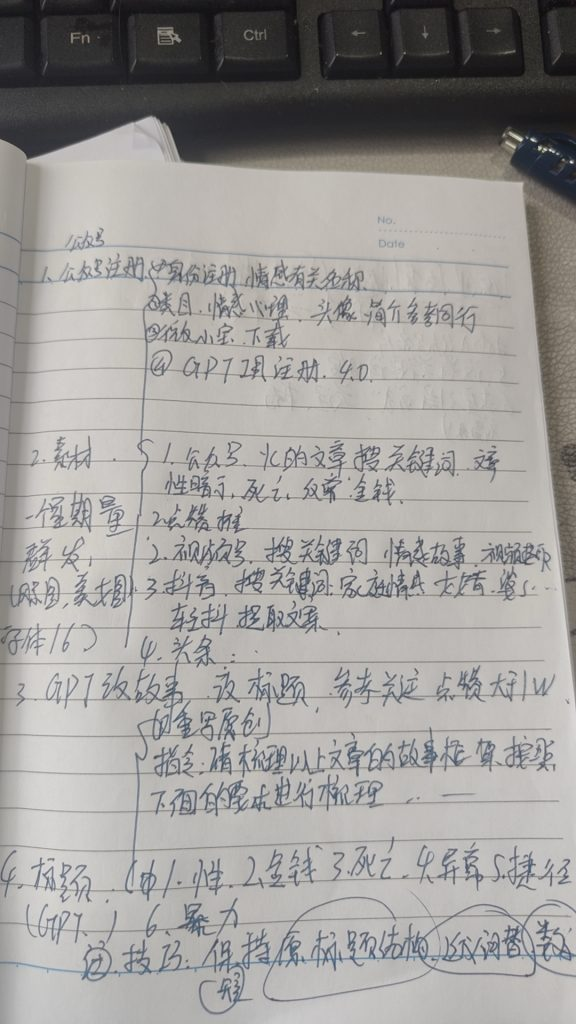 Fn
Ctrl
← ↓ →
No.
Date
公众号
1. 公众号注册 ①身份注册 情感有关名称
②类目. 情感心理. 头像 简介参考同行
下载
④ GPT 注册. 4.0.
2. 素材 1. 公众号. 的文章 搜关键词
性暗示, 死亡, 金钱.
一个星期量 2 点赞
群发, 2. 视频号, 搜关键词 情感故事.
3. 抖音, 搜关键词. 家庭情感
字体16) 轻抖 提取文案
4. 头条..
3. GPT改故事 改标题, 参考关注 点赞大于1W
的重写原创
指令: 请梳理以上文章的故事框架, 按照
下面的要求进行梳理 .. —
4. 标题. 1. 性. 2. 金钱 3. 死亡. 4. 异常 5. 捷径
(GPT.) 6. 暴力
技巧: 保持原标题结构,